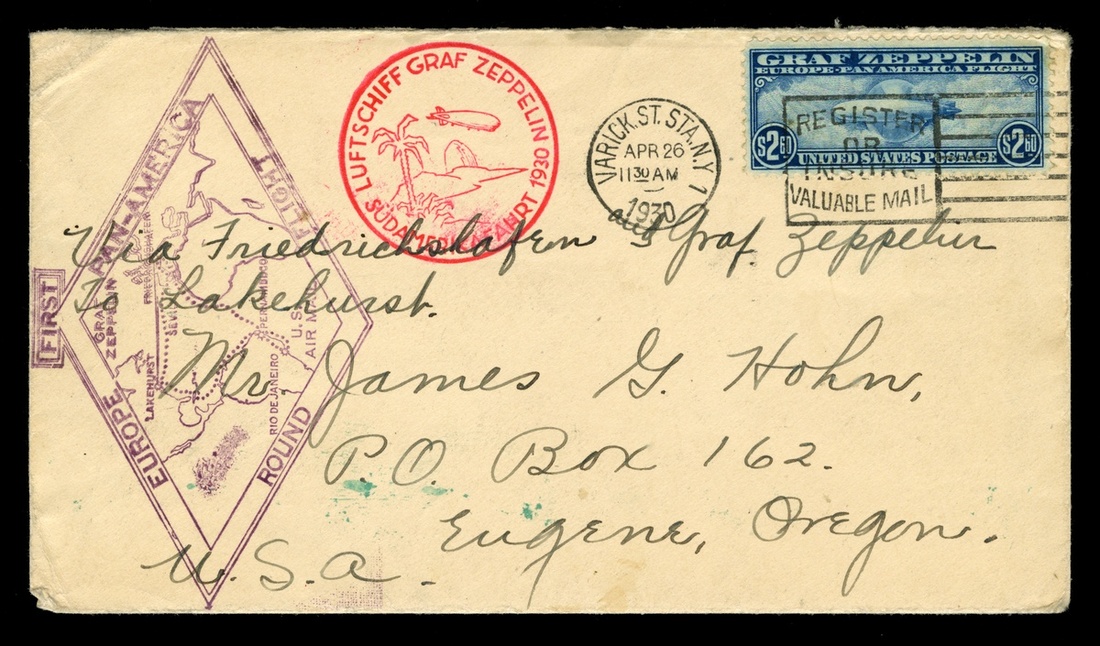 LUFTSCHIFF GRAF ZEPPELIN 1930
SÜDAMERIKAFAHRT
VARICK.ST. STA.N.Y. 1
APR 26
11 30 AM
1930
GRAF ZEPPELIN
EUROPE-PAN AMERICA FLIGHT
$2 60 $2 60
UNITED STATES POSTAGE
REGISTER
OR
INSURE
VALUABLE MAIL
FIRST
EUROPE PAN-AMERICA
ROUND FLIGHT
GRAF
ZEPPELIN
FRIEDRICHSHAFEN
SEVILLE
LAKEHURST
PERNAMBUCO
RIO DE JANEIRO
U.S.
AIR MAIL
Via Friedrichshafen and Graf Zeppelin
To Lakehurst.
Mr. James G. Hohn,
P.O. Box 162.
Eugene, Oregon.
U.S.A.